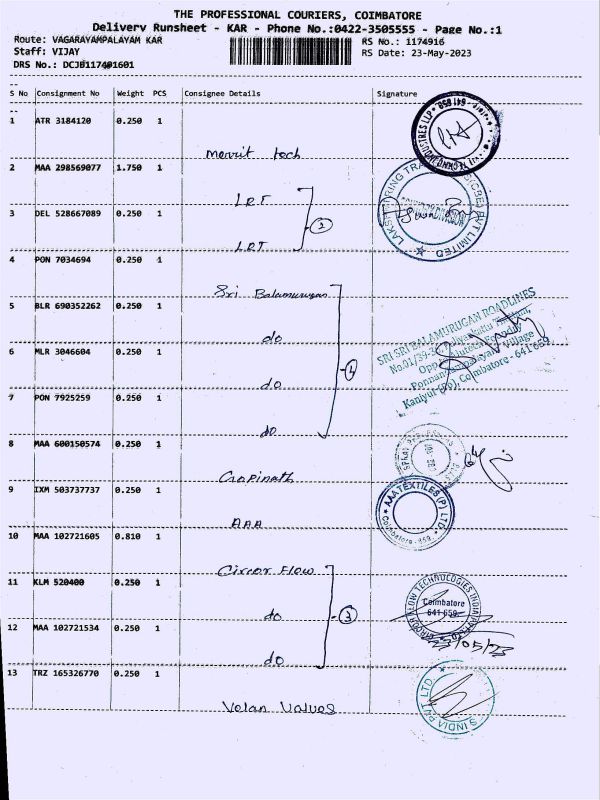 THE PROFESSIONAL COURIERS, COIMBATORE
Delivery Runsheet - KAR - Phone No.:0422-3505555 - Page No.:1
Route: VAGARAYAMPALAYAM KAR
RS No.: 1174916
Staff: VIJAY
RS Date: 23-May-2023
DRS No.: DCJB117401601
S No Consignment No Weight PCS Consignee Details Signature
1 ATR 3184120 0.250 1
Merrit tech
2 MAA 298569077 1.750 1
LRT
3 DEL 528667089 0.250 1
2
LRT
4 PON 7034694 0.250 1
Sri Balamurugan
5 BLR 690352262 0.250 1
do
6 MLR 3046604 0.250 1
4
do
7 PON 7925259 0.250 1
do
8 MAA 600150574 0.250 1
Gopinath
9 IXM 503737737 0.250 1
AAA
10 MAA 102721605 0.810 1
Circor Flow
11 KLM 520400 0.250 1
do
3
12 MAA 102721534 0.250 1
do
13 TRZ 165326770 0.250 1
Velan Valves
TECHNO INDUSTRIES LLP
641 659
PVT LIMITED
SRI SRI BALAMURUGAN ROADLINES
Village
Kaniyur (Po), Coimbatore - 641 659
AAA TEXTILES (P) LTD
Coimbatore - 659
FLOW TECHNOLOGIES INDIA PVT LTD
Coimbatore
641 659
23/05/23
S. INDIA PVT LTD